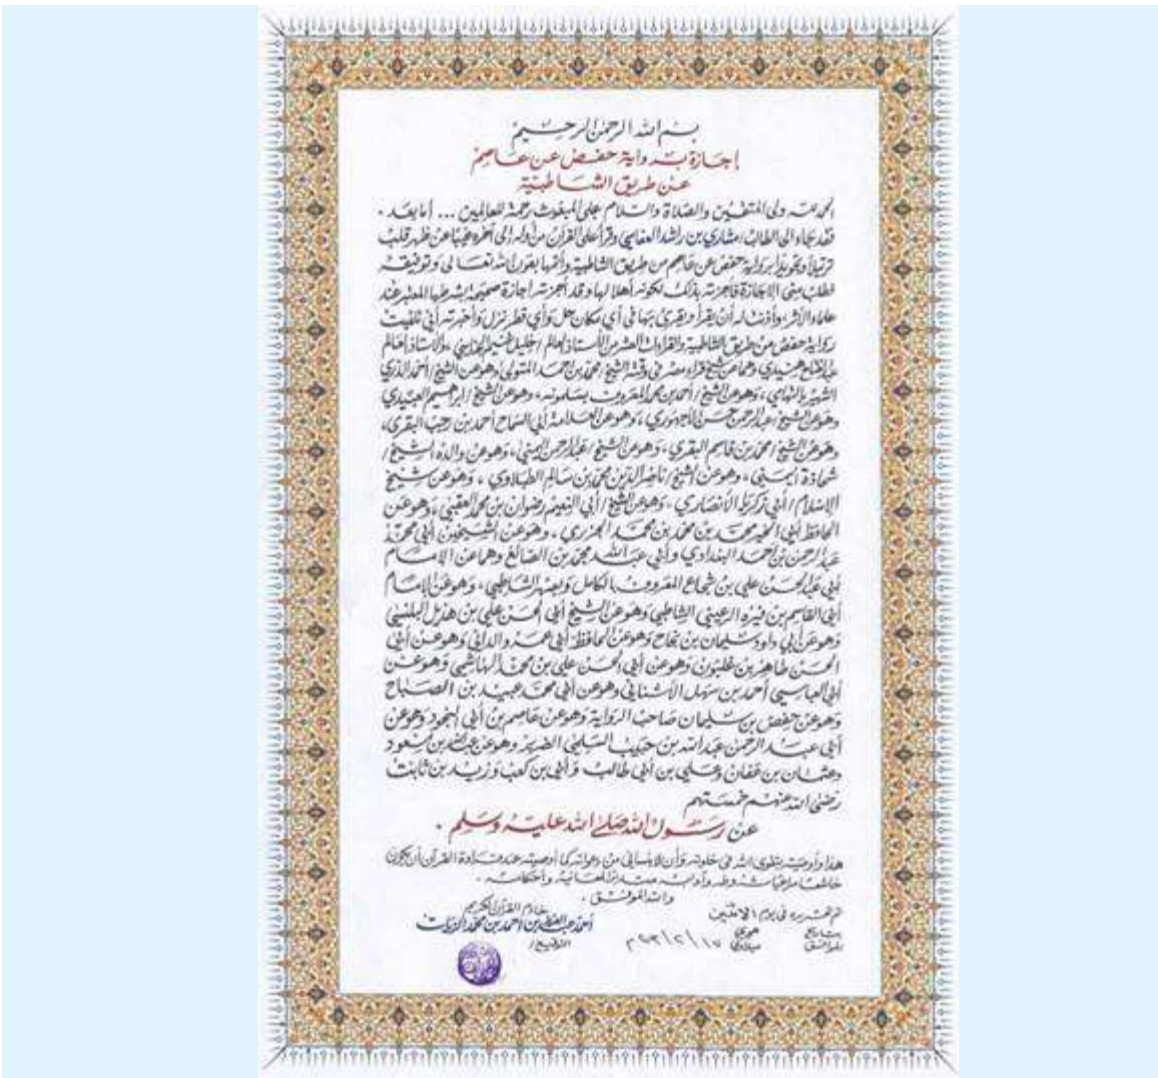 بسم الله الرحمن الرحيم
إجازة برواية حفص عن عاصم
عن طريق الشاطبية
الحمد لله ولي المتقين والصلاة والسلام على المبعوث رحمة للعالمين ... أما بعد .
فقد جاء إلي الطالب / مشاري بن راشد العفاسي وقرأ علي القرآن من أوله إلى آخره غيبا عن ظهر قلب
ترتيلا وتجويدا برواية حفص عن عاصم من طريق الشاطبية وأتمها بعون الله تعالى وتوفيقه
فطلب مني الإجازة فأجزته بذلك لكونه أهلا لها وقد أجزته إجازة صحيحة بشرطها المعتبر عند
علماء الأثر وأذنت له أن يقرأ ويقرئ بها في أي مكان حل وأي قطر نزل وأخبرته أني تلقيت
رواية حفص من طريق الشاطبية والقراءات العشر من الأستاذ العالم الجليل خليل الجنايني والأستاذ العالم
عبد الفتاح هنيدي وهما عن شيخ قراء مصر في وقته الشيخ / محمد بن أحمد المتولي وهو عن الشيخ / أحمد الدري
الشهير بالتهامي ، وهو عن الشيخ / أحمد بن محمد المعروف بسلمونه ، وهو عن الشيخ / إبراهيم العبيدي
وهو عن الشيخ / عبد الرحمن حسن الأجهوري ، وهو عن العلامة أبي السماح أحمد بن رجب البقري ،
وهو عن الشيخ / محمد بن قاسم البقري ، وهو عن الشيخ / عبد الرحمن اليمني ، وهو عن والده الشيخ /
شحاذة اليمني ، وهو عن الشيخ / ناصر الدين محمد بن سالم الطبلاوي ، وهو عن شيخ
الإسلام / أبي زكريا الأنصاري ، وهو عن الشيخ / أبي النعيم رضوان بن محمد العقبي ، وهو عن
الحافظ أبي الخير محمد بن محمد بن محمد الجزري ، وهو عن الشيخين أبي محمد
عبد الرحمن بن أحمد البغدادي وأبي عبد الله محمد بن الصائغ وهما عن الإمام
أبي عبد الحسن علي بن شجاع المعروف بالكامل وبصهر الشاطبي ، وهو عن الإمام
أبي القاسم بن فيره الرعيني الشاطبي وهو عن الشيخ أبي الحسن علي بن هذيل البلنسي
وهو عن أبي داود سليمان بن نجاح وهو عن الحافظ أبي عمرو الداني وهو عن أبي
الحسن طاهر بن غلبون وهو عن أبي الحسن علي بن محمد الهاشمي وهو عن
أبي العباس أحمد بن سهل الأشناني وهو عن أبي محمد عبيد بن الصباح
وهو عن حفص بن سليمان صاحب الرواية وهو عن عاصم بن أبي النجود وهو عن
أبي عبد الرحمن عبد الله بن حبيب السلمي الضرير وهو عن عبد الله بن مسعود
وعثمان بن عفان وعلي بن أبي طالب وأبي بن كعب وزيد بن ثابت
رضي الله عنهم خمستهم
عن رسول الله صلى الله عليه وسلم .
هذا وأوصيه بتقوى الله في خلوته وأن لا ينساني من دعواته كما أوصيه عند قراءة القرآن أن يكون
خاشعا مراعيا شروطه وآدابه متدبرا لمعانيه وأحكامه .
والله الموفق .
تم تحريره في يوم الاثنين
بتاريخ هجري
الموافق ١٧ / ٢ / ٢٠٠٣ م ميلادي
خادم القرآن الكريم
أحمد عبد العزيز بن أحمد بن محمد الزيات
التوقيع /